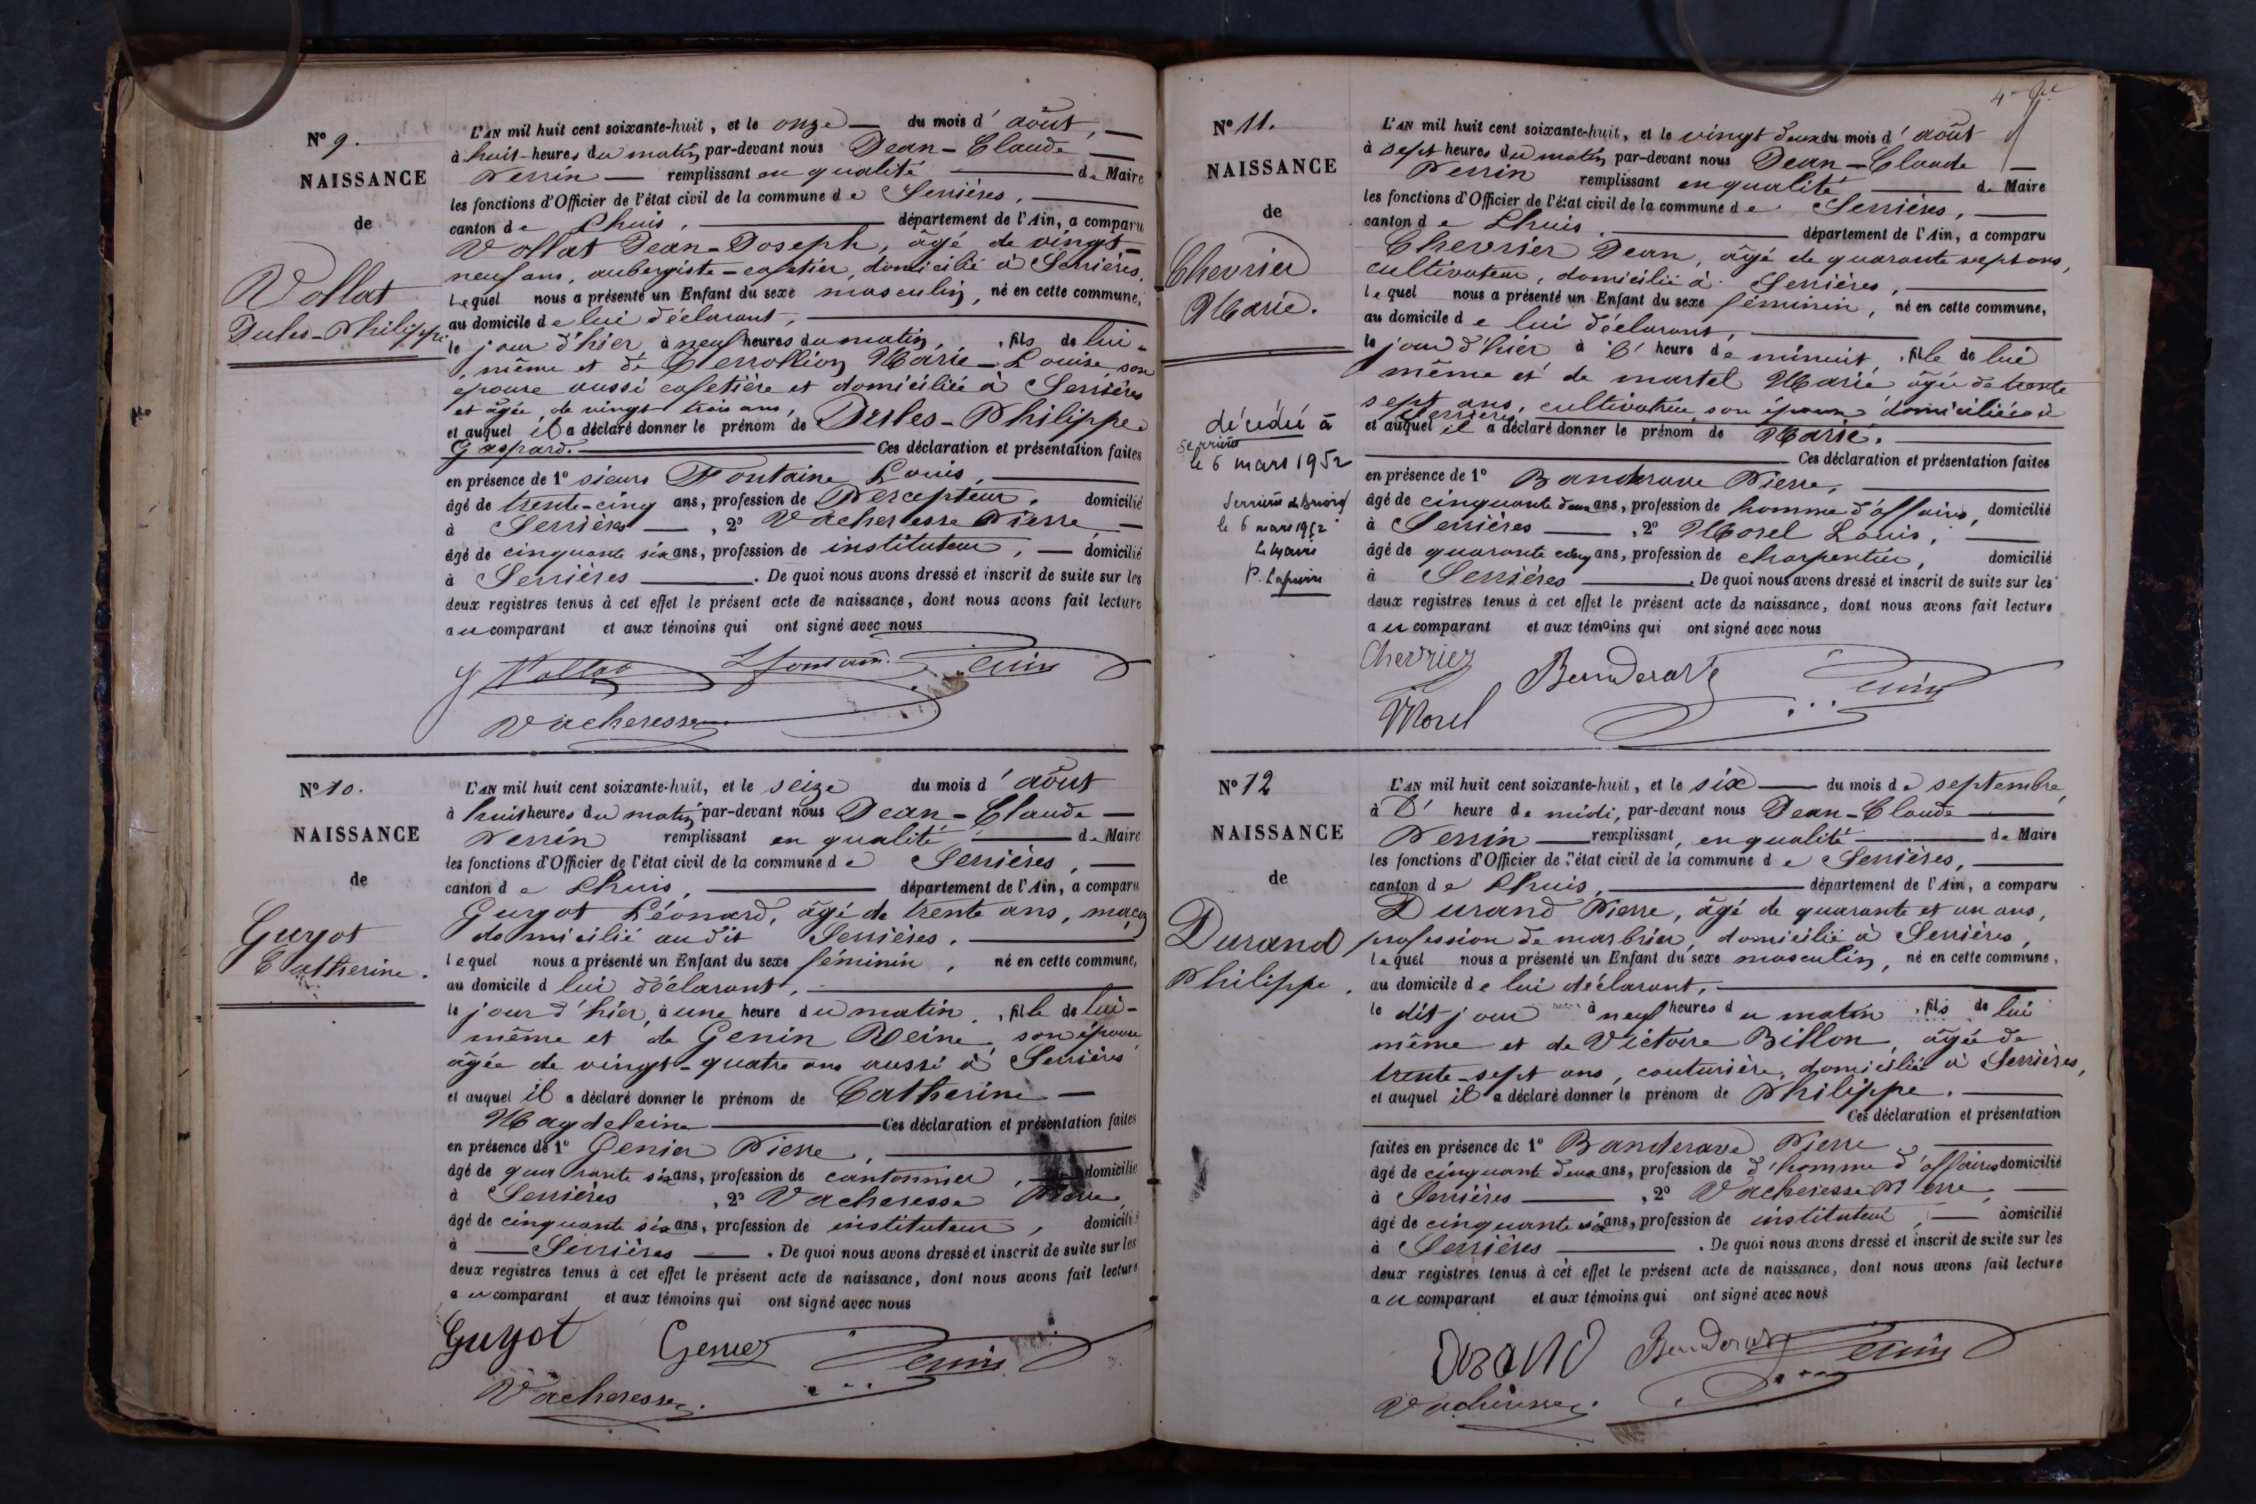 N° 9.
NAISSANCE
de
Vollat
Jules-Philippe
L'AN mil huit cent soixante-huit, et le onze du mois d'août,
à huit heures du matin par-devant nous Jean-Claude
Perrin remplissant en qualité de Maire
les fonctions d'Officier de l'état civil de la commune de Serrières,
canton de Lhuis, département de l'Ain, a comparu
Vollat Jean-Joseph, âgé de vingt-
neuf ans, aubergiste-cafetier, domicilié à Serrières,
lequel nous a présenté un Enfant du sexe masculin, né en cette commune,
au domicile de lui déclarant,
le jour d'hier, à neuf heures du matin, fils de lui-
même et de Marie-Louise son
épouse aussi cafetière et domiciliée à Serrières
et âgée de vingt trois ans,
et auquel il a déclaré donner le prénom de Jules-Philippe
Gaspard. Ces déclaration et présentation faites
en présence de 1° sieurs Fontaine Louis,
âgé de trente-cinq ans, profession de Percepteur, domicilié
à Serrières, 2° Vacheresse Pierre
âgé de cinquante six ans, profession de instituteur, domicilié
à Serrières. De quoi nous avons dressé et inscrit de suite sur les
deux registres tenus à cet effet le présent acte de naissance, dont nous avons fait lecture
au comparant et aux témoins qui ont signé avec nous
J Vollat L fontaine Perrin
Vacheresse
N° 10.
NAISSANCE
de
Guyot
Catherine.
L'AN mil huit cent soixante-huit, et le seize du mois d'août
à huit heures du matin par-devant nous Jean-Claude
Perrin remplissant en qualité de Maire
les fonctions d'Officier de l'état civil de la commune de Serrières,
canton de Lhuis, département de l'Ain, a comparu
Guyot Léonard, âgé de trente ans, maçon
domicilié au dit Serrières.
lequel nous a présenté un Enfant du sexe féminin, né en cette commune,
au domicile d lui déclarant,
le jour d'hier, à une heure du matin, fille de lui-
même et de Genin Reine, son épouse
âgée de vingt-quatre ans aussi à Serrières
et auquel il a déclaré donner le prénom de Catherine
Magdeleine Ces déclaration et présentation faites
en présence de 1° Genier Pierre,
âgé de quarante six ans, profession de cantonnier, domicilié
à Serrières, 2° Vacheresse Pierre,
âgé de cinquante six ans, profession de instituteur, domicilié
à Serrières. De quoi nous avons dressé et inscrit de suite sur les
deux registres tenus à cet effet le présent acte de naissance, dont nous avons fait lecture
au comparant et aux témoins qui ont signé avec nous
Guyot Genier Perrin
Vacheresse
N° 11.
NAISSANCE
de
Chevrier
Marie.
décédée à
Serrières
le 6 mars 1952
Serrières de Briord
le 6 mars 1952
Le Maire
L'AN mil huit cent soixante-huit, et le vingt deux du mois d'août
à sept heures du matin par-devant nous Jean-Claude
Perrin remplissant en qualité de Maire
les fonctions d'Officier de l'état civil de la commune de Serrières,
canton de Lhuis, département de l'Ain, a comparu
Chevrier Jean, âgé de quarante sept ans,
cultivateur, domicilié à Serrières,
lequel nous a présenté un Enfant du sexe féminin, né en cette commune,
au domicile de lui déclarant,
le jour d'hier à l' heure de minuit, fille de lui
même et de martel Marie âgée de trente
sept ans, cultivatrice son épouse domiciliée à
Serrières
et auquel il a déclaré donner le prénom de Marie.
Ces déclaration et présentation faites
en présence de 1° Banderave Pierre,
âgé de cinquante deux ans, profession de homme d'affaires, domicilié
à Serrières, 2° Morel Louis,
âgé de quarante cinq ans, profession de charpentier, domicilié
à Serrières. De quoi nous avons dressé et inscrit de suite sur les
deux registres tenus à cet effet le présent acte de naissance, dont nous avons fait lecture
au comparant et aux témoins qui ont signé avec nous
Chevrier Banderave Perrin
Morel
N° 12
NAISSANCE
de
Durand
Philippe.
L'AN mil huit cent soixante-huit, et le six du mois de septembre,
à l' heure de midi, par-devant nous Jean-Claude
Perrin remplissant, en qualité de Maire
les fonctions d'Officier de l'état civil de la commune de Serrières,
canton de Lhuis, département de l'Ain, a comparu
Durand Pierre, âgé de quarante et un ans,
profession de marbrier, domicilié à Serrières,
lequel nous a présenté un Enfant du sexe masculin, né en cette commune,
au domicile de lui déclarant,
le dit jour à neuf heures du matin, fils de lui
même et de Victoire Billon, âgée de
trente-sept ans, couturière, domiciliée à Serrières,
et auquel il a déclaré donner le prénom de Philippe.
Ces déclaration et présentation
faites en présence de 1° Banderave Pierre
âgé de cinquante deux ans, profession de d'homme d'affaires domicilié
à Serrières, 2° Vacheresse Pierre,
âgé de cinquante six ans, profession de instituteur, domicilié
à Serrières. De quoi nous avons dressé et inscrit de suite sur les
deux registres tenus à cet effet le présent acte de naissance, dont nous avons fait lecture
au comparant et aux témoins qui ont signé avec nous
Durand Banderave Perrin
Vacheresse